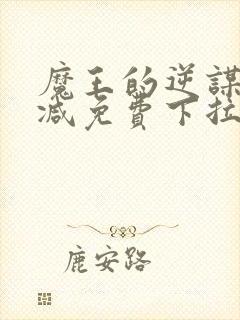 魔王的逆謀
减免費下拉
鹿安路